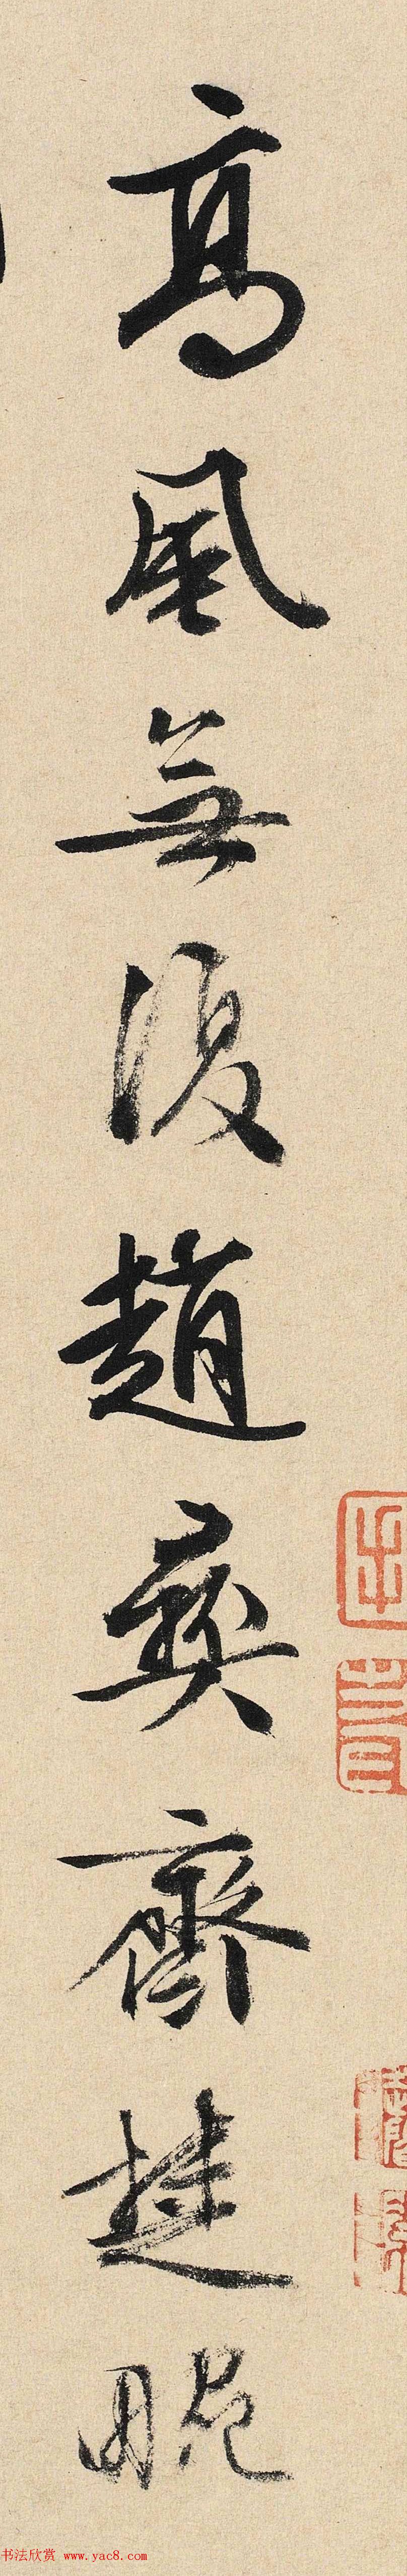 高風無復趙彝齋楚畹
书法欣赏 www.yac8.com